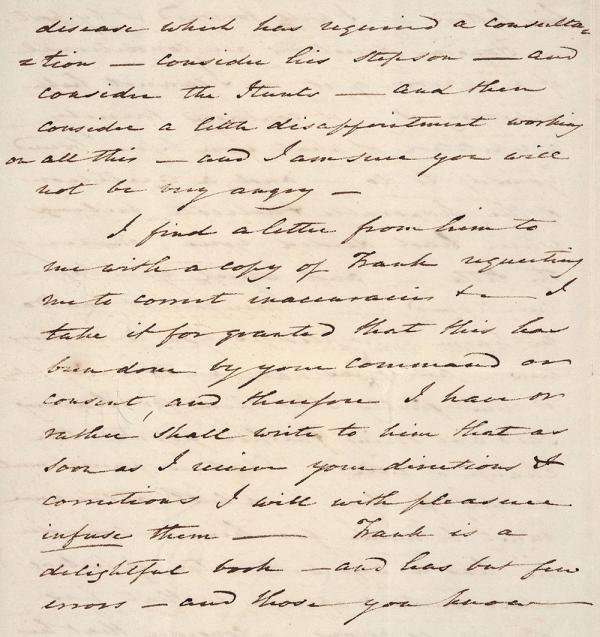 disease which has required a consulta=
=tion — consider his stepson — and
consider the Stunts — and then
consider a little disappointment working
on all this — and I am sure you will
not be very angry —
I find a letter from him to
me with a copy of Frank requesting
me to correct inaccuracies &c — I
take it for granted that this has
been done by your command or
consent, and therefore I have or
rather shall write to him that as
soon as I receive your directions &
corrections I will with pleasure
infuse them — Frank is a
delightful book — and has but few
errors — and those you know —